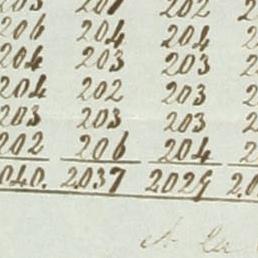 203 201 202 2
206 204 204 2
204 203 203 2
204 202 203 2
203 203 203 2
202 206 204 2
040. 2.037 2029 2.0